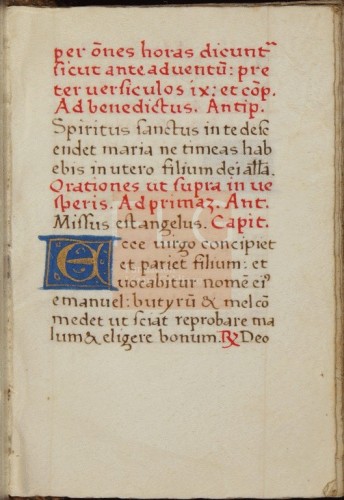 per ōnes horas dicunt᷒
sicut ante adventū: pre
ter versiculos ix: et cōp.
Ad benedictus. Antip.
Spiritus sanctus in te desc
endet maria ne timeas hab
ebis in utero filium dei all̄a.
Orationes ut supra in ve
speris. Ad primaz. Ant.
Missus est angelus. Capit.
Ecce virgo concipiet
et pariet filium: et
vocabitur nomē eiꝰ
emanuel: butyrū & mel cō
medet ut sciat reprobare ma
lum & eligere bonum. ℞ Deo